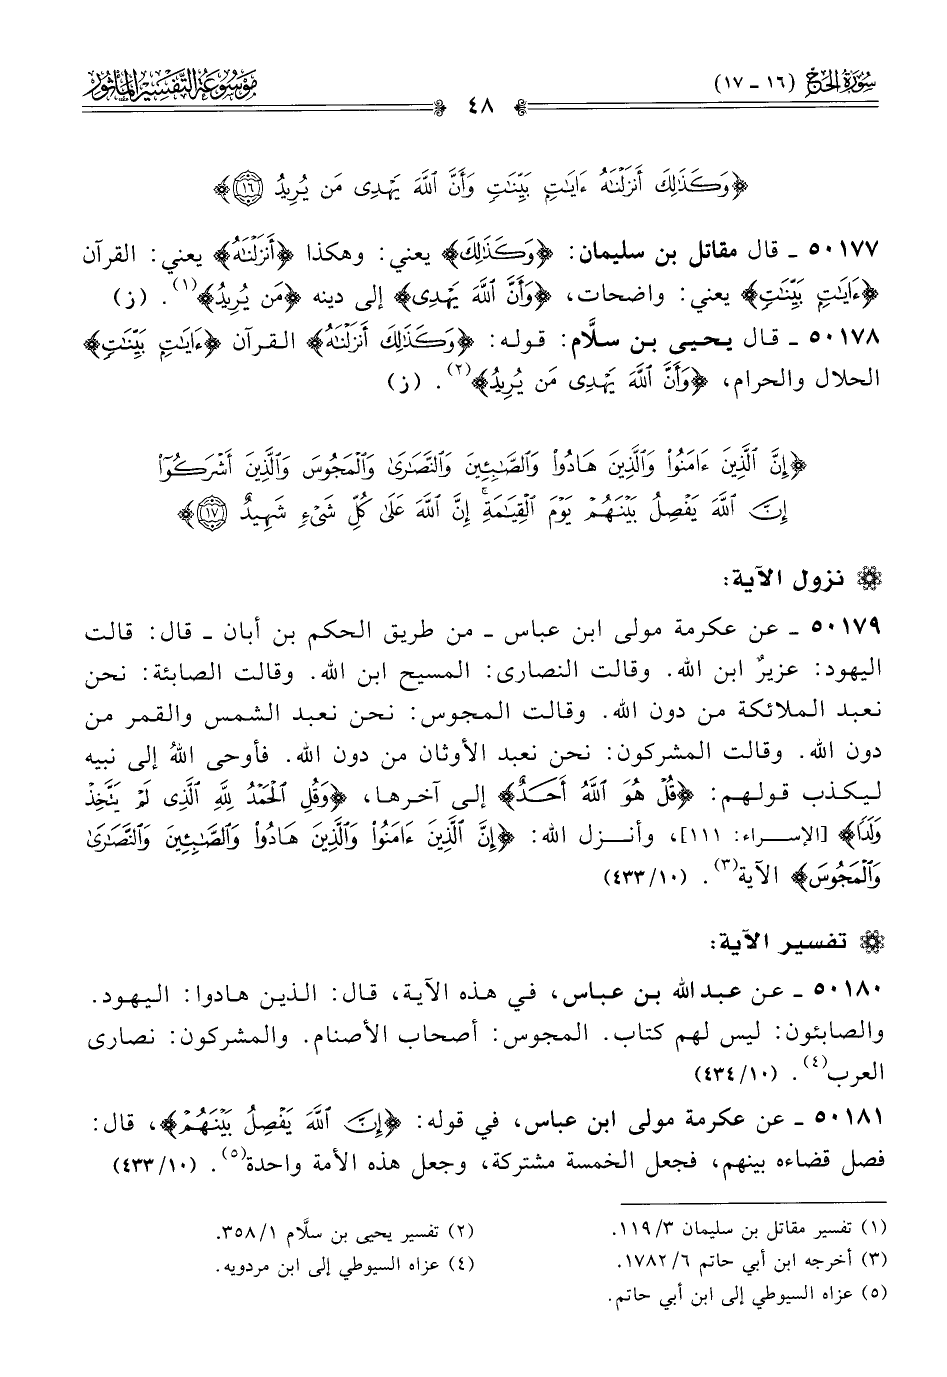 سُورَةُ الحَجِّ (١٦ - ١٧)
٤٨
مَوْسُوعَةُ التَّفْسِيرِ المَأْثُورِ
﴿وَكَذَٰلِكَ أَنزَلْنَٰهُ ءَايَٰتٍۭ بَيِّنَٰتٍ وَأَنَّ ٱللَّهَ يَهْدِى مَن يُرِيدُ ١٦﴾
٥٠١٧٧ - قال مقاتل بن سليمان: ﴿وَكَذَٰلِكَ﴾ يعني: وهكذا ﴿أَنزَلْنَٰهُ﴾ يعني: القرآن
﴿ءَايَٰتٍۭ بَيِّنَٰتٍ﴾ يعني: واضحات، ﴿وَأَنَّ ٱللَّهَ يَهْدِى﴾ إلى دينه ﴿مَن يُرِيدُ﴾(١). (ز)
٥٠١٧٨ - قال يحيى بن سلَّام: قوله: ﴿وَكَذَٰلِكَ أَنزَلْنَٰهُ﴾ القرآن ﴿ءَايَٰتٍۭ بَيِّنَٰتٍ﴾
الحلال والحرام، ﴿وَأَنَّ ٱللَّهَ يَهْدِى مَن يُرِيدُ﴾(٢). (ز)
﴿إِنَّ ٱلَّذِينَ ءَامَنُوا۟ وَٱلَّذِينَ هَادُوا۟ وَٱلصَّٰبِـِٔينَ وَٱلنَّصَٰرَىٰ وَٱلْمَجُوسَ وَٱلَّذِينَ أَشْرَكُوٓا۟
إِنَّ ٱللَّهَ يَفْصِلُ بَيْنَهُمْ يَوْمَ ٱلْقِيَٰمَةِ ۚ إِنَّ ٱللَّهَ عَلَىٰ كُلِّ شَىْءٍ شَهِيدٌ ١٧﴾
نزول الآية:
٥٠١٧٩ - عن عكرمة مولى ابن عباس - من طريق الحكم بن أبان - قال: قالت
اليهود: عزيرٌ ابن الله. وقالت النصارى: المسيح ابن الله. وقالت الصابئة: نحن
نعبد الملائكة من دون الله. وقالت المجوس: نحن نعبد الشمس والقمر من
دون الله. وقالت المشركون: نحن نعبد الأوثان من دون الله. فأوحى اللهُ إلى نبيه
ليكذب قولهم: ﴿قُلْ هُوَ ٱللَّهُ أَحَدٌ﴾ إلى آخرها، ﴿وَقُلِ ٱلْحَمْدُ لِلَّهِ ٱلَّذِى لَمْ يَتَّخِذْ
وَلَدًا﴾ [الإسراء: ١١١]، وأنزل الله: ﴿إِنَّ ٱلَّذِينَ ءَامَنُوا۟ وَٱلَّذِينَ هَادُوا۟ وَٱلصَّٰبِـِٔينَ وَٱلنَّصَٰرَىٰ
وَٱلْمَجُوسَ﴾ الآية(٣). (١٠/٤٣٣)
تفسير الآية:
٥٠١٨٠ - عن عبدالله بن عباس، في هذه الآية، قال: الذين هادوا: اليهود.
والصابئون: ليس لهم كتاب. المجوس: أصحاب الأصنام. والمشركون: نصارى
العرب(٤). (١٠/٤٣٤)
٥٠١٨١ - عن عكرمة مولى ابن عباس، في قوله: ﴿إِنَّ ٱللَّهَ يَفْصِلُ بَيْنَهُمْ﴾، قال:
فصل قضاءه بينهم، فجعل الخمسة مشتركة، وجعل هذه الأمة واحدة(٥). (١٠/٤٣٣)
(١) تفسير مقاتل بن سليمان ٣/ ١١٩.
(٢) تفسير يحيى بن سلَّام ١/ ٣٥٨.
(٣) أخرجه ابن أبي حاتم ٦/ ١٧٨٢.
(٤) عزاه السيوطي إلى ابن مردويه.
(٥) عزاه السيوطي إلى ابن أبي حاتم.